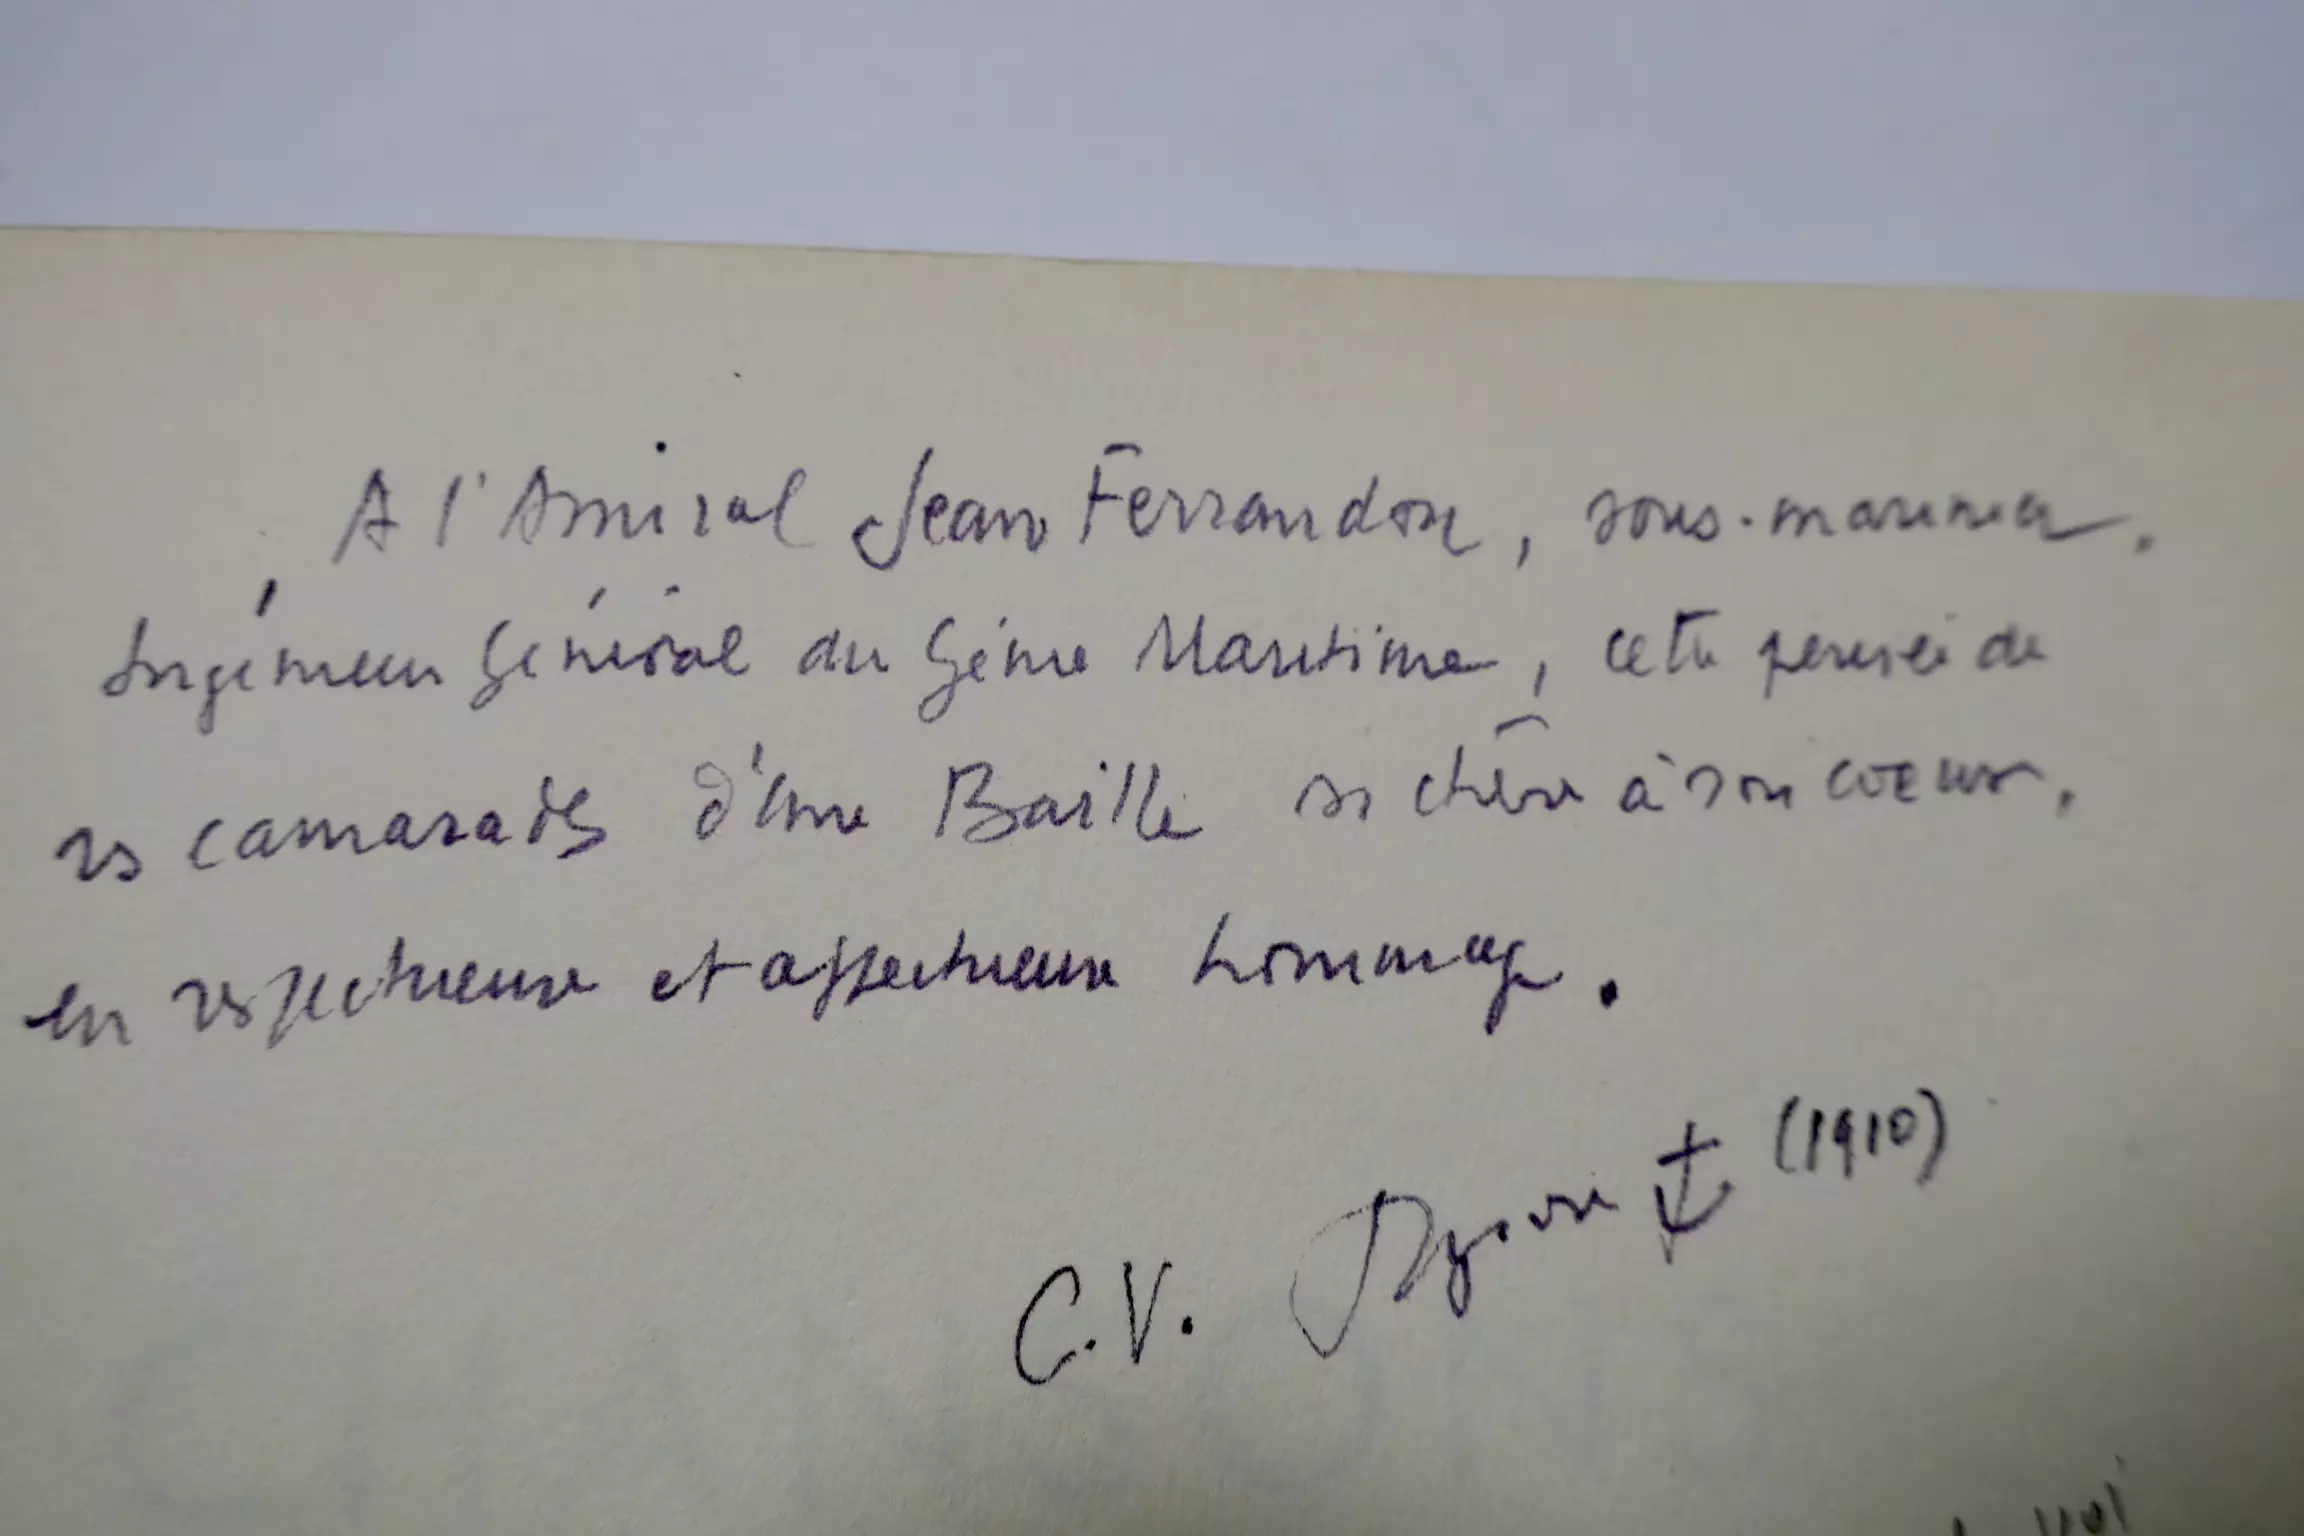 A l'Amiral Jean Ferrandon, sous-marinier,
Ingénieur Général du Génie Maritime, cette pensée de
camarades d'une Baille si chère à son coeur,
en respectueux et affectueux hommage.
C.V. (1910)